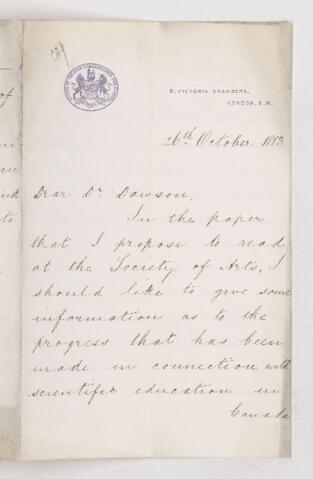 9, VICTORIA CHAMBERS,
LONDON, S.W.
26th October 1883
Dear Dr. Dawson,
In the paper
that I propose to read
at the Society of Arts, I
should like to give some
information as to the
progress that has been
made in connection with
scientific education in
Canada
of
ink
to